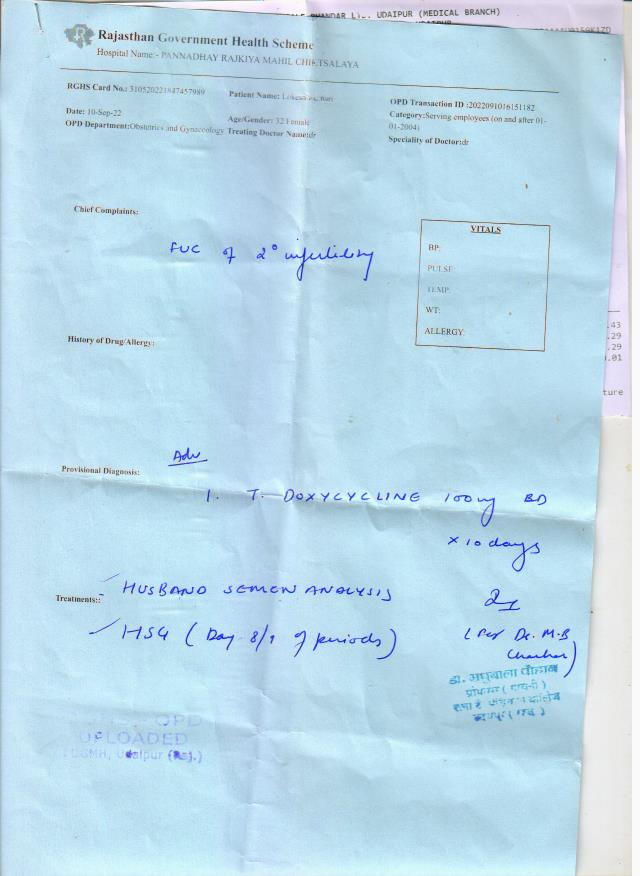 UDAIPUR (MEDICAL BRANCH)
Rajasthan Government Health Scheme
Hospital Name:- PANNADHAY RAJKIYA MAHIL CHIKTSALAYA
RGHS Card No.: 310520221847457989
Patient Name:
OPD Transaction ID :2022091016151182
Date: 10-Sep-22
Age/Gender: 32 Female
Category:Serving employees (on and after 01-
01-2004)
OPD Department:Obstetrics and Gynaecology Treating Doctor Name:dr
Speciality of Doctor:dr
Chief Complaints:
FUC of 2° infertility
VITALS
BP:
PULSE:
TEMP:
WT:
ALLERGY:
.43
.29
.29
.01
ture
History of Drug/Allergy:
Adv
Provisional Diagnosis:
1. T. DOXYCYCLINE 100mg BD
x 10 days
- HUSBAND SEMEN ANALYSIS
Treatments::
HSG (Day 8/9 of periods)
Dr. M.B
डा. मधुबाला चौहान
OPD
UPLOADED
Udaipur (Raj.)